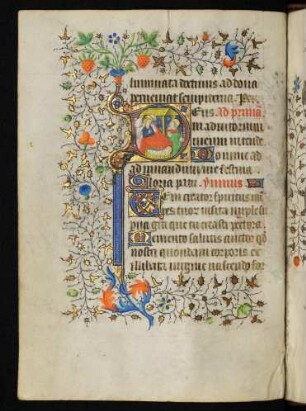 luminata decimus ad dona
perveniat sempiterna Per
Deus Ad primam
in adiutorium
meum intende
Domine ad
adiuvandum me festina
Gloria patri. Ymnus
Veni creator spiritus men
tes tuor visita imple su
pna gra que tu creasti pectora
Memento salutis auctor qd
nostri quondam corporis ex
illibata virgine nascendo for